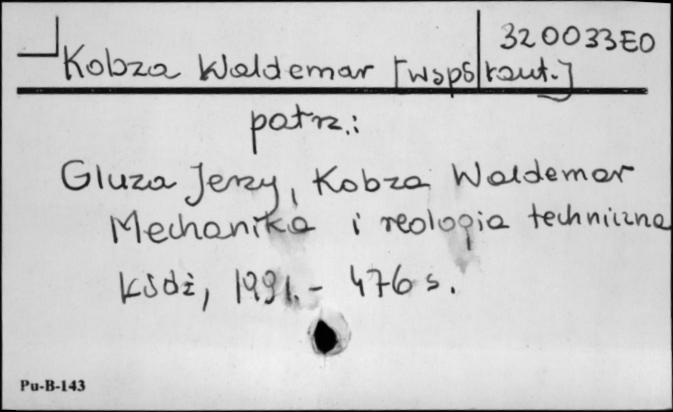 320033E0
Kobza Waldemar [współaut.]
patrz.:
Gluza Jerzy, Kobza Waldemar
Mechanika i reologia techniczna
Łódź, 1991.- 476 s.
Pu-B-143